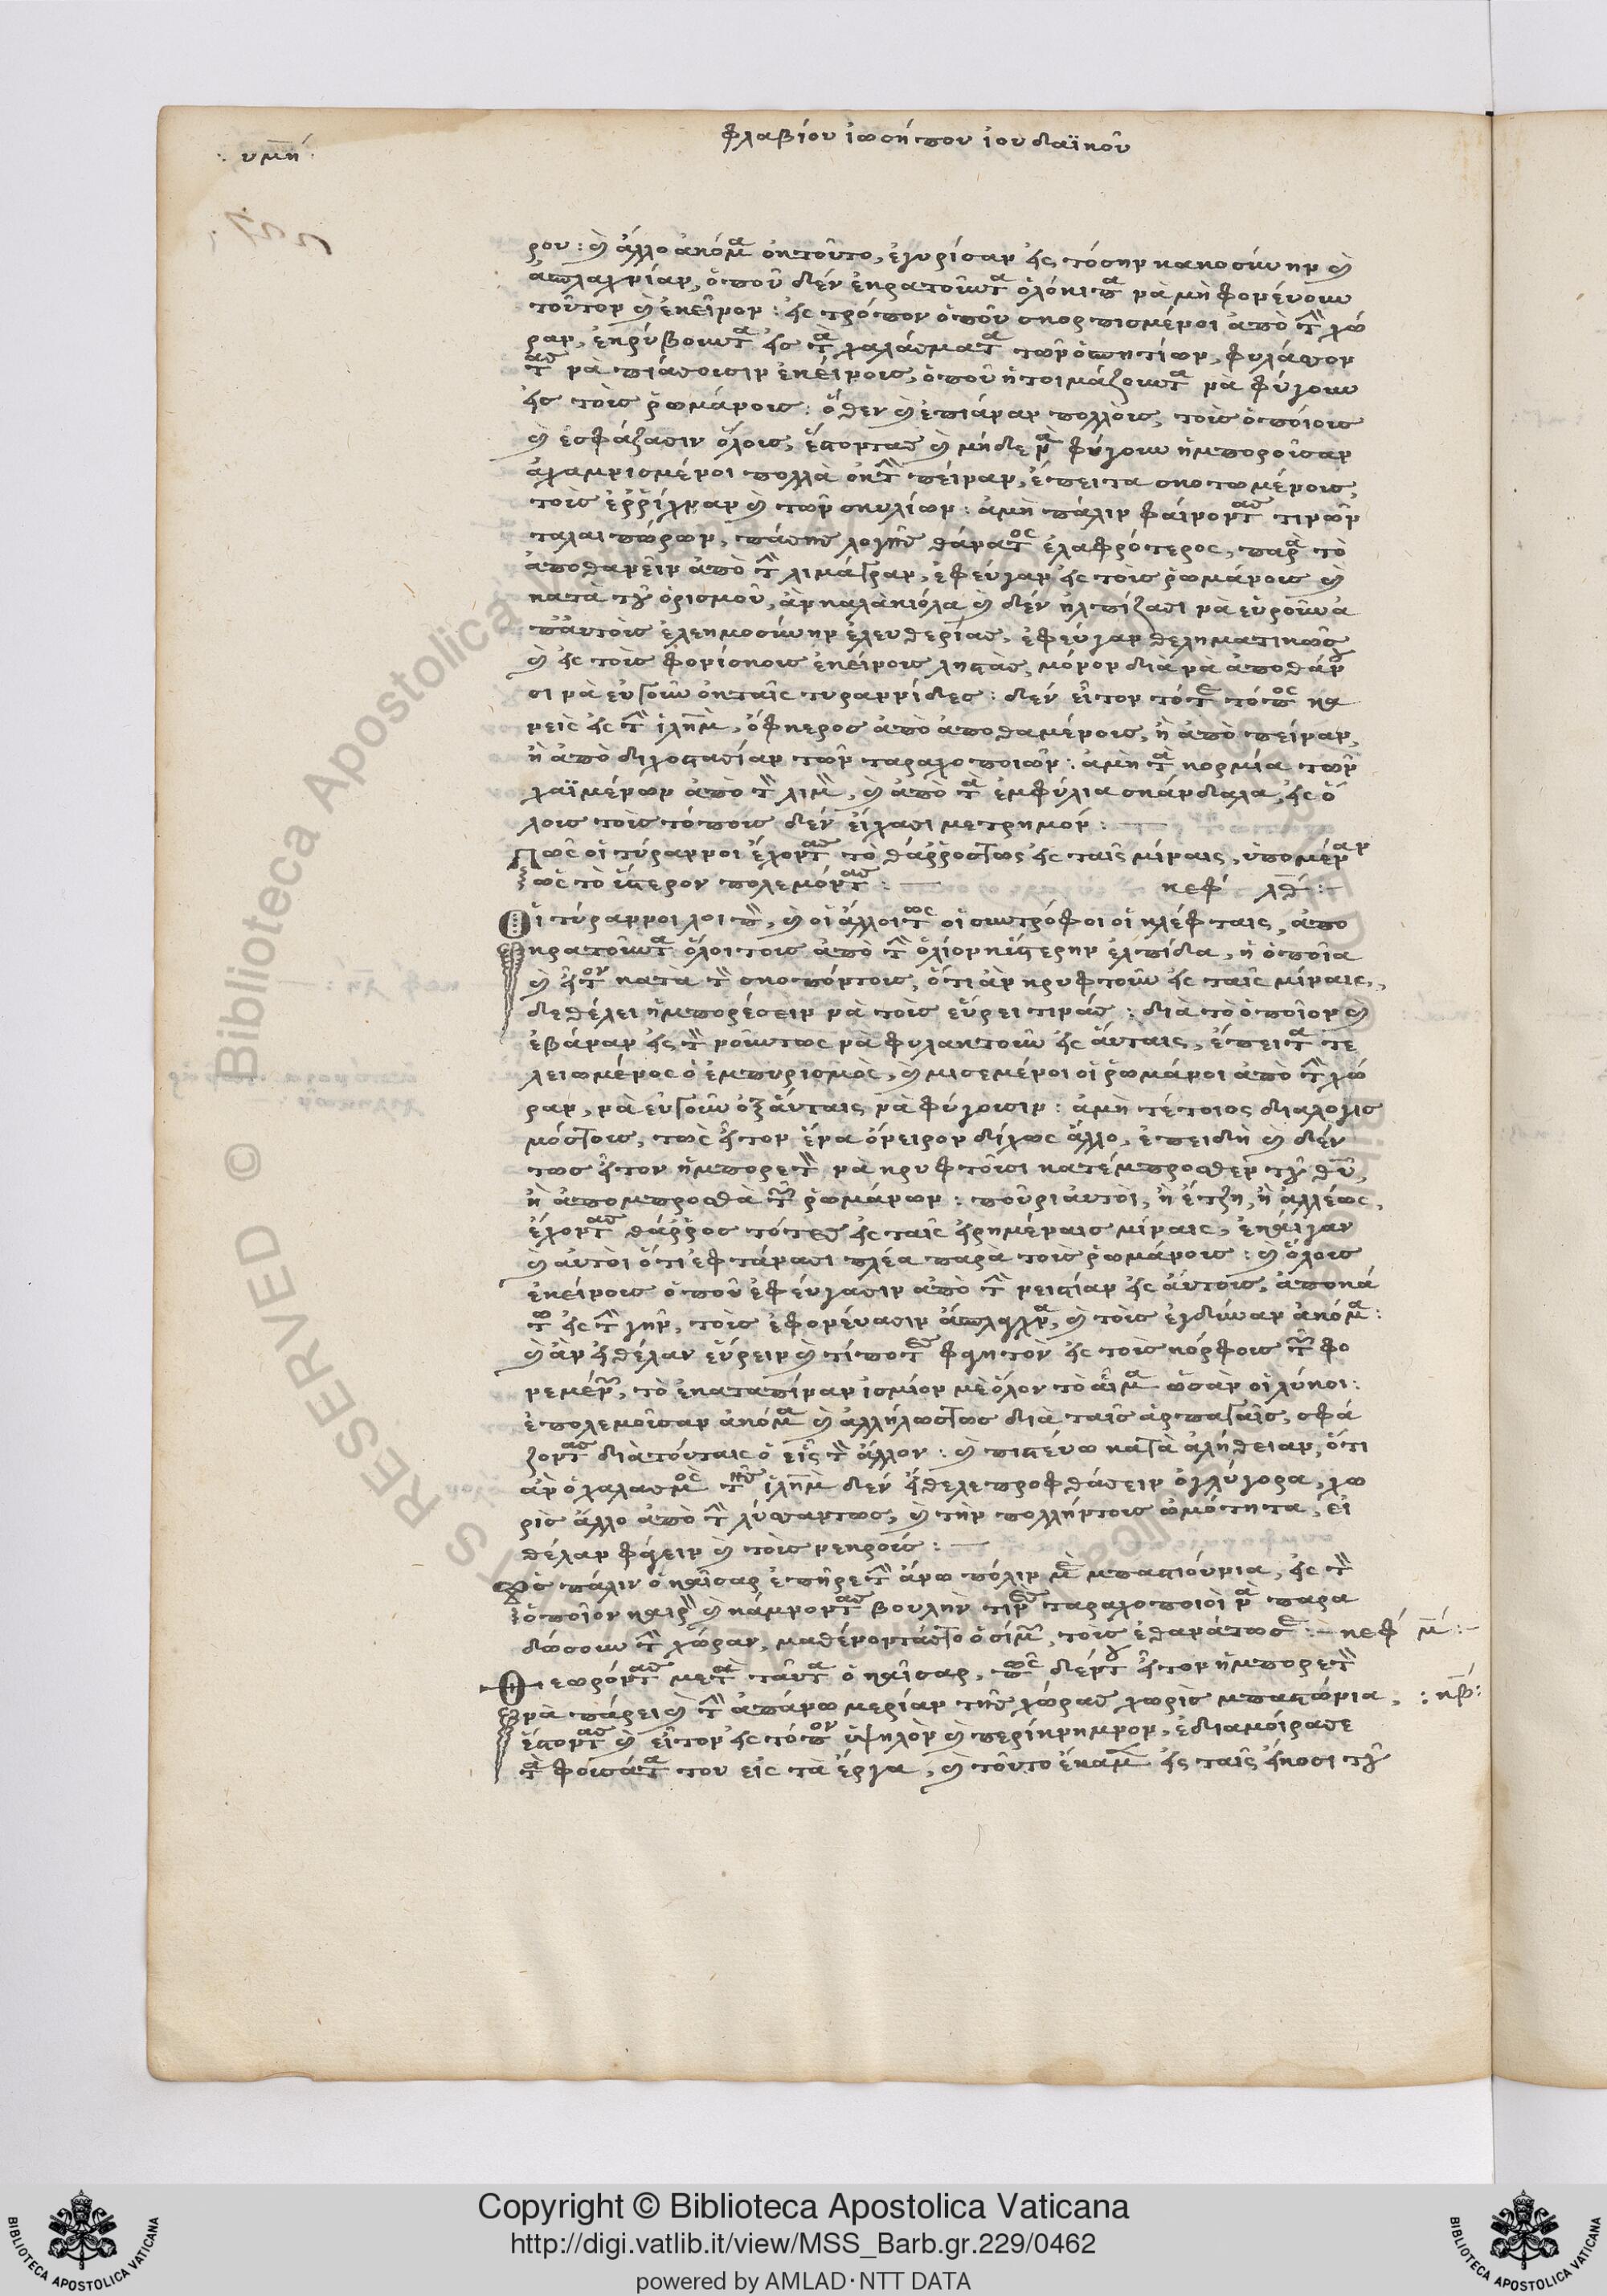 φλαβίου ἰωσήπου ἰουδαϊκοῦ
: υμη :
ρου: καὶ ἄλλο ἀκόμα ἐκτοῦτο, ἐγυρίσαν εἰς τόσην κακοσύνην καὶ
ἀσπλαχνίαν, ὁποῦ δὲν ἐκρατοῦντα ὁλόκιπτα νὰ μὴ φονεύουν
τοῦτον καὶ ἐκεῖνον: εἰς τρόπον ὁποῦ σκορπισμένοι ἀπὸ τὴν χώ
ραν, ἐκρύβουντα εἰς τὰ χαλάσματα τῶν ὁσπητίων, φυλάγον
τας νὰ πιάσουσιν ἐκείνους, ὁποῦ ἠτοιμάζουντα νὰ φύγουν
εἰς τοὺς ῥωμάνους: ὅθεν καὶ ἐπιάναν πολλοὺς, τοὺς ὁποίους
καὶ ἐσφάζασιν ὅλους, ἔστοντας καὶ μήδε νὰ φύγουν ἠμποροῦσαν
ἀχαμνισμένοι πολλὰ ἐκ τὴν πεῖναν, ἔπειτα σκοτωμένους,
τοὺς ἐῤῥίχναν καὶ τῶν σκυλίων: ἀμὴ πάλιν φαίνονταν τινῶν
ταλαιπώρων, πάσης λογῆς θάνατος ἐλαφρότερος, παρὰ τὸ
ἀποθανεῖν ἀπὸ τὴν λιμάσραν, ἐφεύγαν εἰς τοὺς ῥωμάνους καὶ
κατὰ τοῦ ὁρισμοῦ, ἂν καλὰ κιόλα καὶ δὲν ἠλπίζασι νὰ εὑροῦν ἀ
πἀυτοὺς ἐλεημοσύνην ἐλευθερίας, ἐφεύγαν θεληματικῶς
καὶ εἰς τοὺς φονίσκους ἐκείνους ληστὰς, μόνον διὰ νὰ ἀποθάν
σι νὰ εὐγοῦν ἐκταῖς τυραννίδες: δὲν εἶτον τότε τόπος κα
νεὶς εἰς τὴν ἱλημ, ὄφκερος ἀπὸ ἀποθαμένους, ἢ ἀπὸ πεῖναν,
ἢ ἀπὸ διχοστασίαν τῶν ταραχοποιῶν: ἀμὴ τὰ κορμία τῶν
χαϊμένων ἀπὸ τὴν λιμ, καὶ ἀπὸ τὰ ἐμφύλια σκάνδαλα, εἰς ὅ
λους τοὺς τόπους δὲν εἴχασι μετρημόν:
Πῶς οἱ τύραννοι ἔχοντας τὸ θάῤῥοςτως εἰς ταῖς μίναις, ὑπομέναν
ἕως τὸ ὕστερον πολεμόντας: κεφ λθ:
Οἱ τύραννοι λοιπὸν, καὶ οἱ ἄλλοιτως οἱ συντρόφοι οἱ κλέφταις, ἀπο
κρατοῦντα ὅλοι τοὺς ἀπὸ τὴν ὀλίον κὕστερην ἐλπίδα, ἡ ὁποῖα
καὶ ἦτον κατὰ τὸν σκοπόντους, ὅτι ἂν κρυφτοῦν εἰς ταῖς μίναις,
δεθέλει ἠμπορέσειν νὰ τοὺς εὕρει τινάς: διὰ τὸ ὁποῖον καὶ
ἐβάναν εἰς τὸν νοῦντως νὰ φυλακτοῦν εἰς ἄυταις, ἔπειτα τε
λειωμένος ὁ ἐμπυρισμὸς, καὶ μισεμένοι οἱ ῥωμάνοι ἀπὸ τὴν χώ
ραν, νὰ εὐγοῦν ὀξάυταις νὰ φύγουσιν: ἀμὴ τέτοιος διαλογισ
μόςτους, τῶς ἦτον ἕνα ὄνειρον δίχως ἄλλο, ἐπειδὴ καὶ δὲν
τως ἦτον ἠμπορετὸν νὰ κρυφτοῦσι κατέμπροσθεν τοῦ θεοῦ,
ἢ ἀπομπροσθὰ τῶν ῥωμάνων: ποῦρι ἀυτοὶ, ἢ ἔτζη, ἢ ἀλλέως,
ἔχοντας θάῤῥος τότες εἰς ταῖς εἰρημέναις μίναις, ἐκάιγαν
καὶ ἀυτοὶ ὅτι ἐφτάνασι πλέα παρὰ τοὺς ῥωμάνους: καὶ ὅλους
ἐκείνους ὁποῦ ἐφεύγασιν ἀπὸ τὴν νειστίαν εἰς ἄυτους, ἀποκά
τω εἰς τὴν γῆν, τοὺς ἐφονεύασιν ἄσπλαχνα, καὶ τοὺς ἐγδύναν ἀκόμα:
καὶ ἂν εἰθέλαν εὕρειν καὶ τίποτες φαγητὸν εἰς τοὺς κόρφους τῶν φο
νεμένων, τὸ ἐκαταπίναν ἰσμίον μὲ ὅλον τὸ αἷμα ὡσὰν οἱ λύκοι:
ἐπολεμοῦσαν ἀκόμα καὶ ἀλλήλωςτως διὰ ταῖς ἁρπαγαῖς, σφά
ζοντας διὰ τόυταις ὁ εἷς τὸν ἄλλον: καὶ πιστεύω κατὰ ἀλήθειαν, ὅτι
ἂν ὁ χαλασμὸς τῆς ἱλημ δὲν ἤθελε προφθάσειν ὀγλύγορα, χω
ρὶς ἄλλο ἀπὸ τὴν λύσσαντως, καὶ τὴν πολλήντους ὠμότητα, εἰ
θέλαν φάγειν καὶ τοὺς νεκροὺς:
Πῶς πάλιν ὁ καῖσαρ ἐπῆρε τὴν ἄνω πόλιν μὲ μπαστιούνια, εἰς τὸν
ὁποῖον καιρὸν καὶ κάμνοντας βουλὴν τινὲς ταραχοποιοὶ νὰ παρα
δώσουν τὴν χώραν, μαθένοντάςτο ὁ σίμων, τοὺς ἐθανάτωσε: κεφ μ:
Θεωρόντας μετὰ ταῦτα ὁ καῖσαρ, πῶς δέντου ἦτον ἠμπορετὸν
νὰ πάρει καὶ τὴν ἀπάνω μερίαν τῆς χώρας χωρὶς μπαστιόνια, : κβ:
ἔστοντας καὶ εἶτον εἰς τόπον ὑψηλὸν καὶ περίκρημνον, ἐδιαμοίρασε
τὰ φουσάτα του εἰς τὰ ἔργα, καὶ τοῦτο ἔκαμε εἰς ταῖς εἴκοσι τοῦ
Copyright © Biblioteca Apostolica Vaticana
http://digi.vatlib.it/view/MSS_Barb.gr.229/0462
powered by AMLAD·NTT DATA
BIBLIOTECA APOSTOLICA VATICANA
BIBLIOTECA APOSTOLICA VATICANA